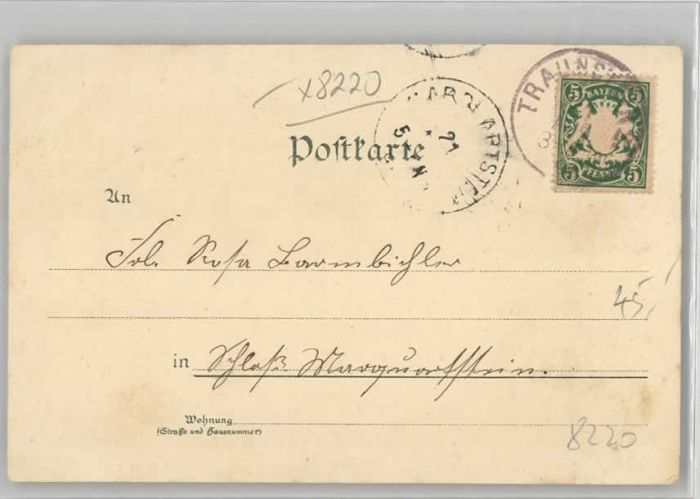 x8220
TRAUNS
BAYERN
5 5
5 5
PFENNIG
Postkarte
An
Frl. Rosa Barmbichler
45,
in Schloß Marquartstein.
Wohnung
(Straße und Hausnummer)
8220